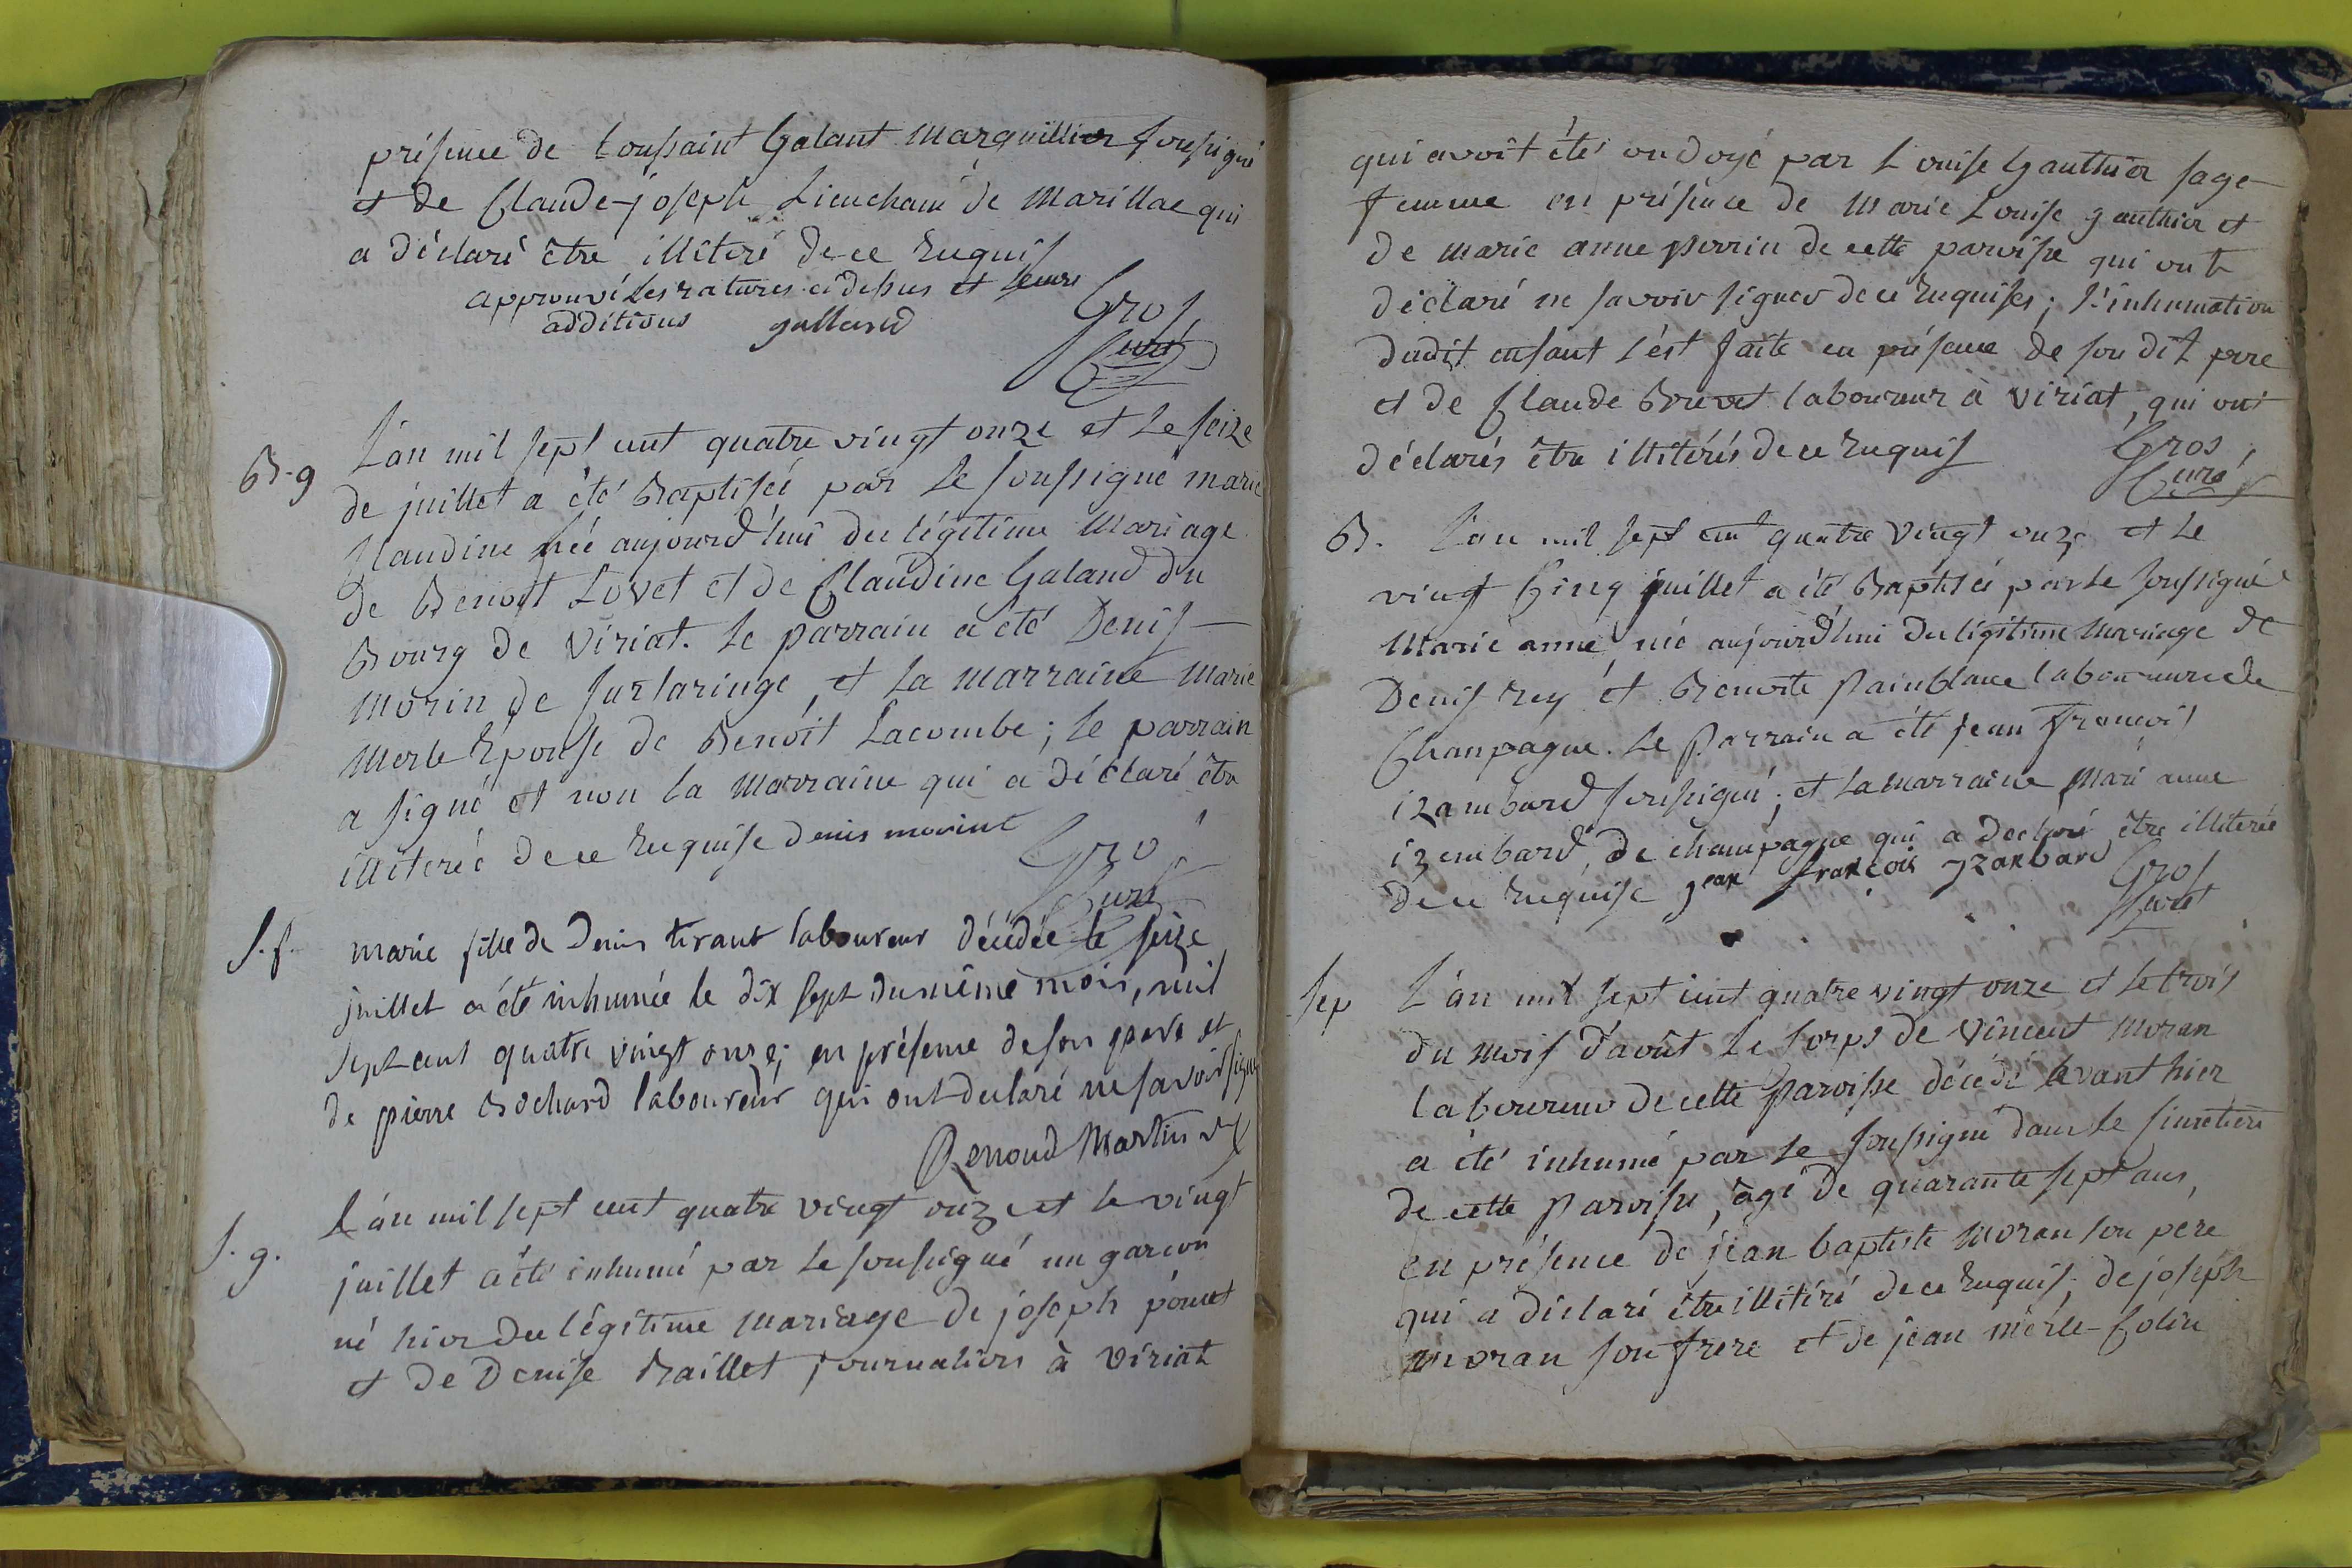 présence de toussaint Galant Marguillier soussigné
et de Claude-joseph Lieuchain de Marillac qui
a déclaré être illiteré de ce Requis
approuvé les ratures cidessus et leurs
additions galland
Gros
Curé
B-g
L'an mil sept cent quatre vingt onze et le seize
de juillet a été Baptisée par le soussigné marie
Claudine née aujourd'hui du légitime Mariage
de Benoit Lovet et de Claudine Galand du
Bourg de Viriat. le parrain a été Denis
Morin de surlaringe, et la marraine Marie
Merle Epouse de Benoît Lacombe; le parrain
a signé et non la Marraine qui a déclaré être
illiterée de ce Requise Denis morint
Gros
Curé
S.f.
marie fille de Denis tirant laboureur décédée le seize
juillet a été inhumée le dix sept du même mois, mil
sept cent quatre vingt onze; en présence de son pere et
de pierre Bochard laboureur qui ont declaré ne savoir signer
Renoud Martin
S.g.
L'an mil sept cent quatre vingt onze et le vingt
juillet a été inhumé par le soussigné un garcon
né hier du légitime Mariage de joseph pomet
et de Denise Baillet journaliers à Viriat
qui avoit été ondoyé par Louise Gauthier sage
femme en présence de Marie Louise gauthier et
de Marie anne perrin de cette paroisse qui ont
déclaré ne savoir signer de ce Requises; l'inhumation
dudit enfant s'est faite en présence de son dit pere
et de Claude Brevet laboureur à Viriat, qui ont
déclarés être illitérés de ce Requis
Gros,
Curé
B.
L'an mil sept cent quatre vingt onze et le
vingt Cinq juillet a été Baptisée par le soussigné
Marie anne née aujourd'hui du légitime Mariage de
Denis rey et Benoite painblanc laboureurs de
Champagne. Le Parrain a été jean François
izambard soussigné; et la marraine Marie anne
izembard, de champagne qui a declaré être illiterée
de ce Requise jean françois yzanbard
Gros
Curé
Sep
L'an mil sept cent quatre vingt onze et le trois
du mois d'août le Corps de Vincent Moran
laboureur de cette Paroisse décédé avant hier
a été inhumé par le soussigné dans le simetiere
de cette Paroisse, âgé de quarante sept ans,
en présence de jean baptiste Moran son pere
qui a déclaré être illitéré de ce Requis, de joseph
moran son frere et de jean mèrle-Colin